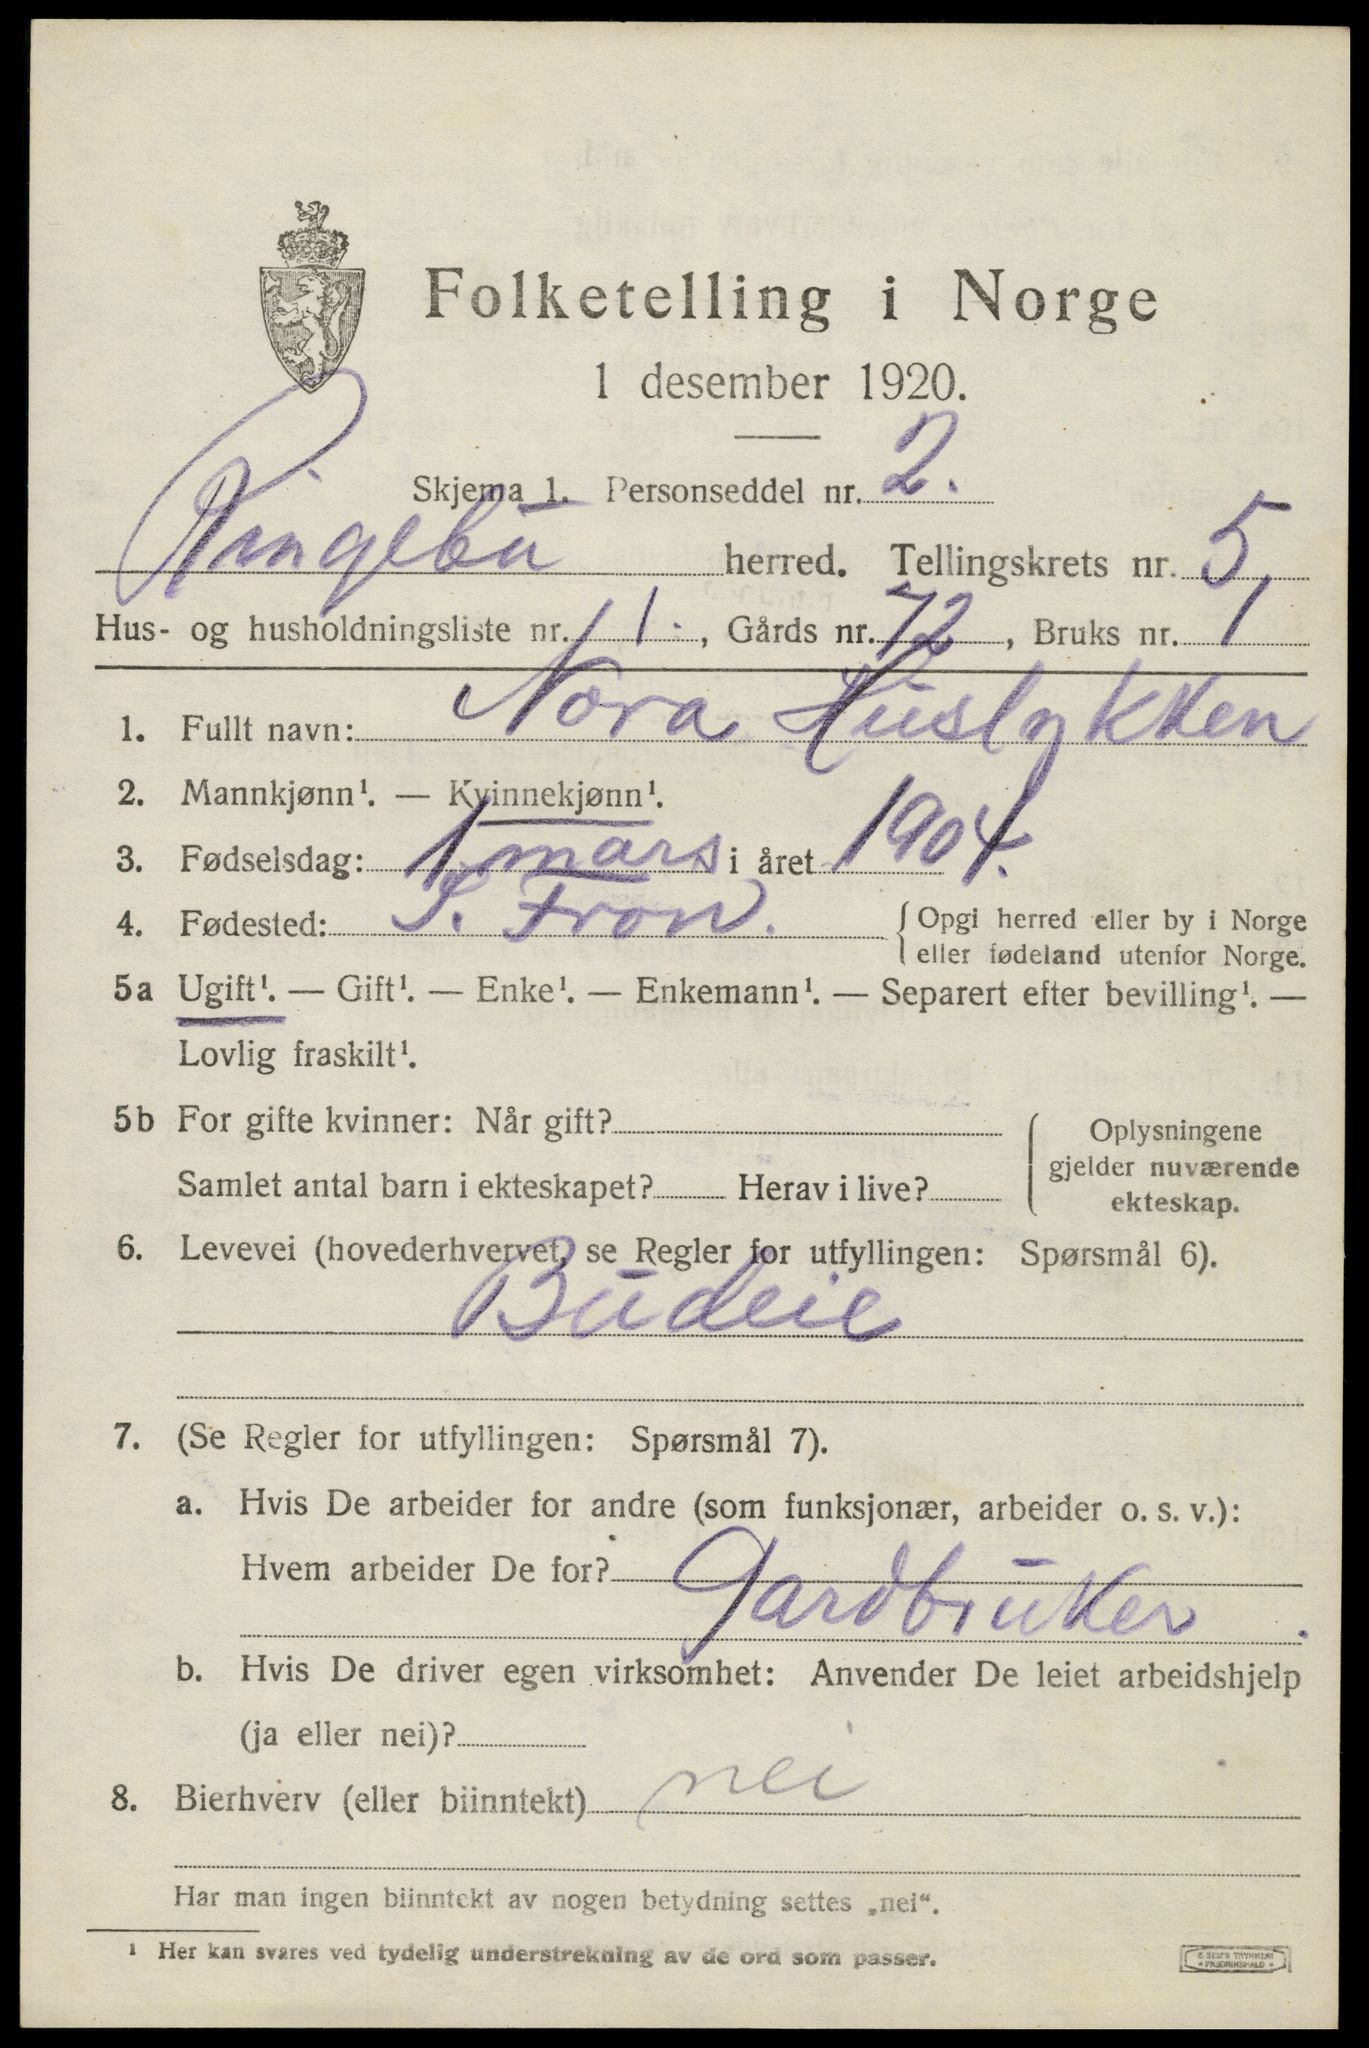 Folketelling i Norge
1 desember 1920.
Skjema 1. Personseddel nr. 2.
Ringebu herred. Tellingskrets nr. 5,
Hus- og husholdningsliste nr. 11., Gårds nr. 72, Bruks nr. 1
1. Fullt navn: Nora Huslykken
2. Mannkjønn¹. — Kvinnekjønn¹.
3. Fødselsdag: 1 mars i året 1904.
4. Fødested: S. Fron. Opgi herred eller by i Norge
eller fødeland utenfor Norge.
5a Ugift¹. — Gift¹. — Enke¹. — Enkemann¹. — Separert efter bevilling¹. —
Lovlig fraskilt¹.
5b For gifte kvinner: Når gift? Oplysningene
gjelder nuværende
Samlet antal barn i ekteskapet? Herav i live? ekteskap.
6. Levevei (hovederhvervet, se Regler for utfyllingen: Spørsmål 6).
Budeie
7. (Se Regler for utfyllingen: Spørsmål 7).
a. Hvis De arbeider for andre (som funksjonær, arbeider o. s. v.):
Hvem arbeider De for? Gardbruker.
b. Hvis De driver egen virksomhet: Anvender De leiet arbeidshjelp
(ja eller nei)?
8. Bierhverv (eller biinntekt) nei
Har man ingen biinntekt av nogen betydning settes „nei“.
¹ Her kan svares ved tydelig understrekning av de ord som passer.